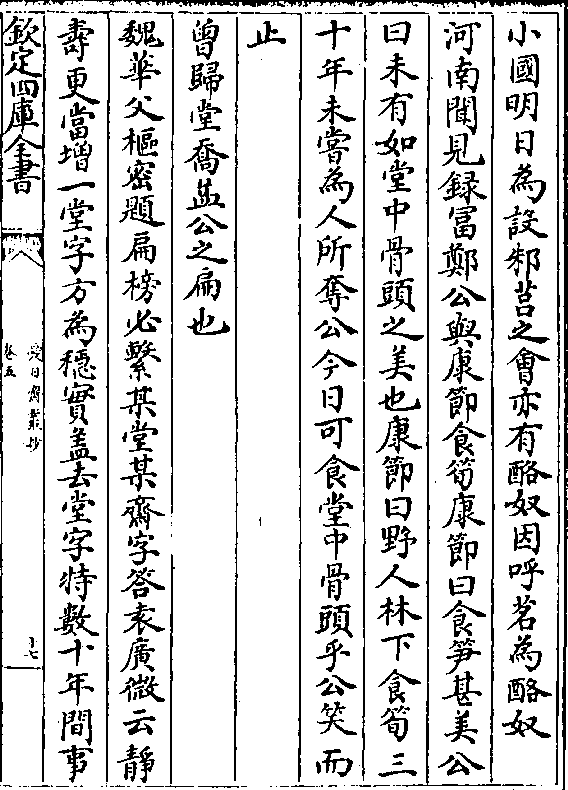 小國明日為設邾莒之會亦有酪奴因呼茗為酪奴
河南聞見録富鄭公與康節食筍康節曰食笋甚美公
曰未有如堂中骨頭之美也康節曰野人林下食筍三
十年未嘗為人所奪公今日可食堂中骨頭乎公笑而
止
曾歸堂喬益公之扁也
魏華父樞密題扁榜必繫某堂某齋字答袁廣微云靜
壽更當增一堂字方為穩實盖去堂字特數十年間事
欽定四庫全書
愛日齋叢抄
卷五
十七